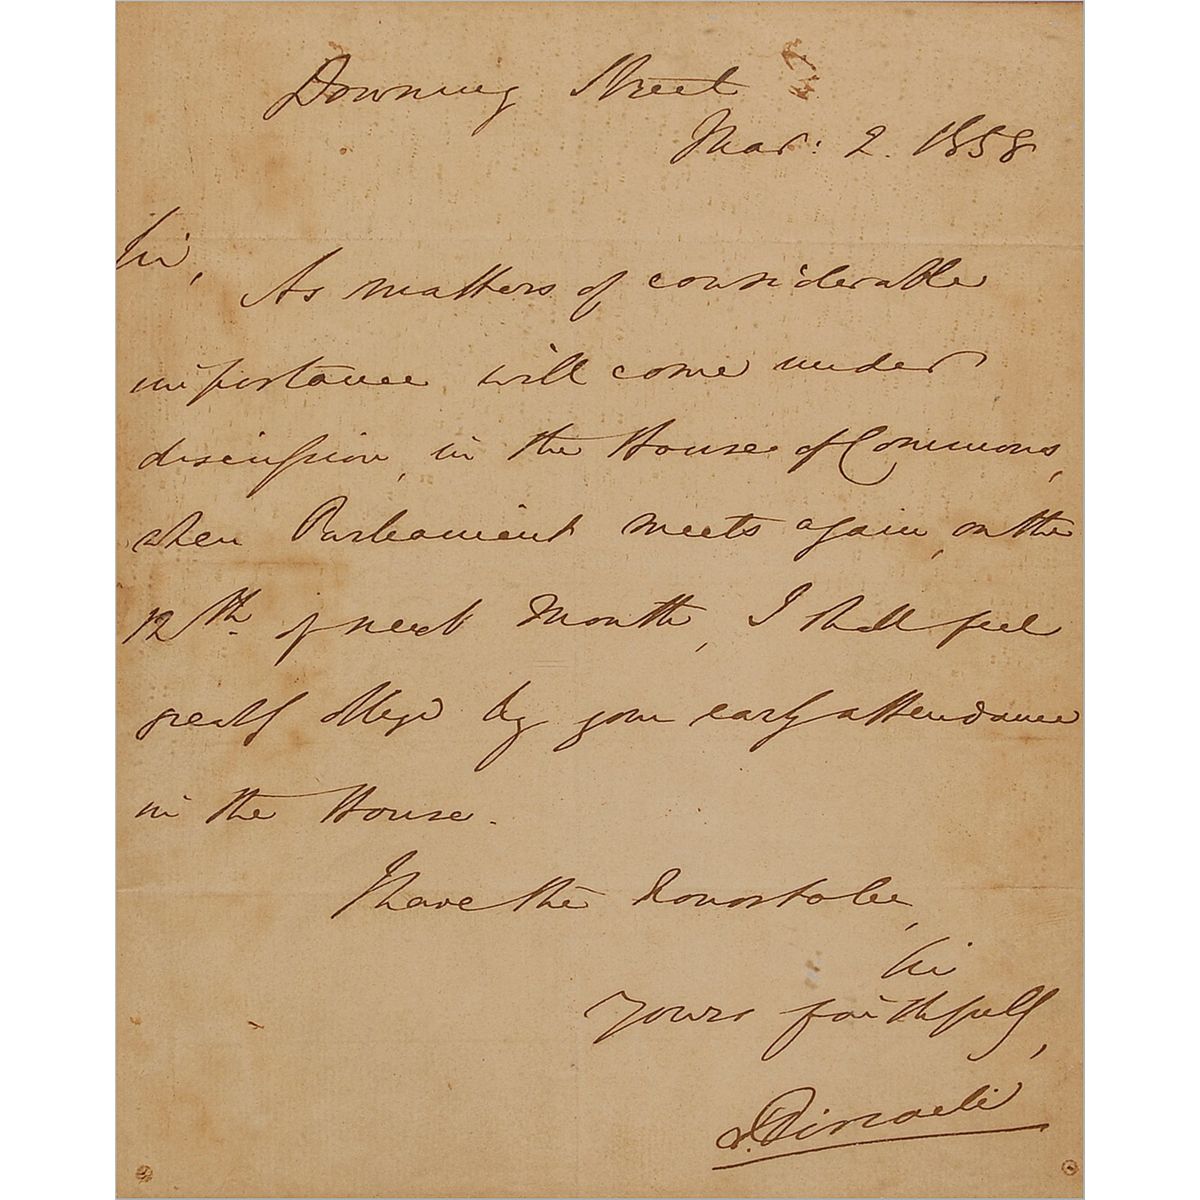 Downing Street
Mar: 2. 1858
Sir,
As matters of considerable
importance will come under
discussion, in the House of Commons,
when Parliament meets again, on the
12th. of next Month, I shall feel
greatly obliged by your early attendance
in the House.
I have the honor to be,
Sir
Yours faithfully,
B. Disraeli